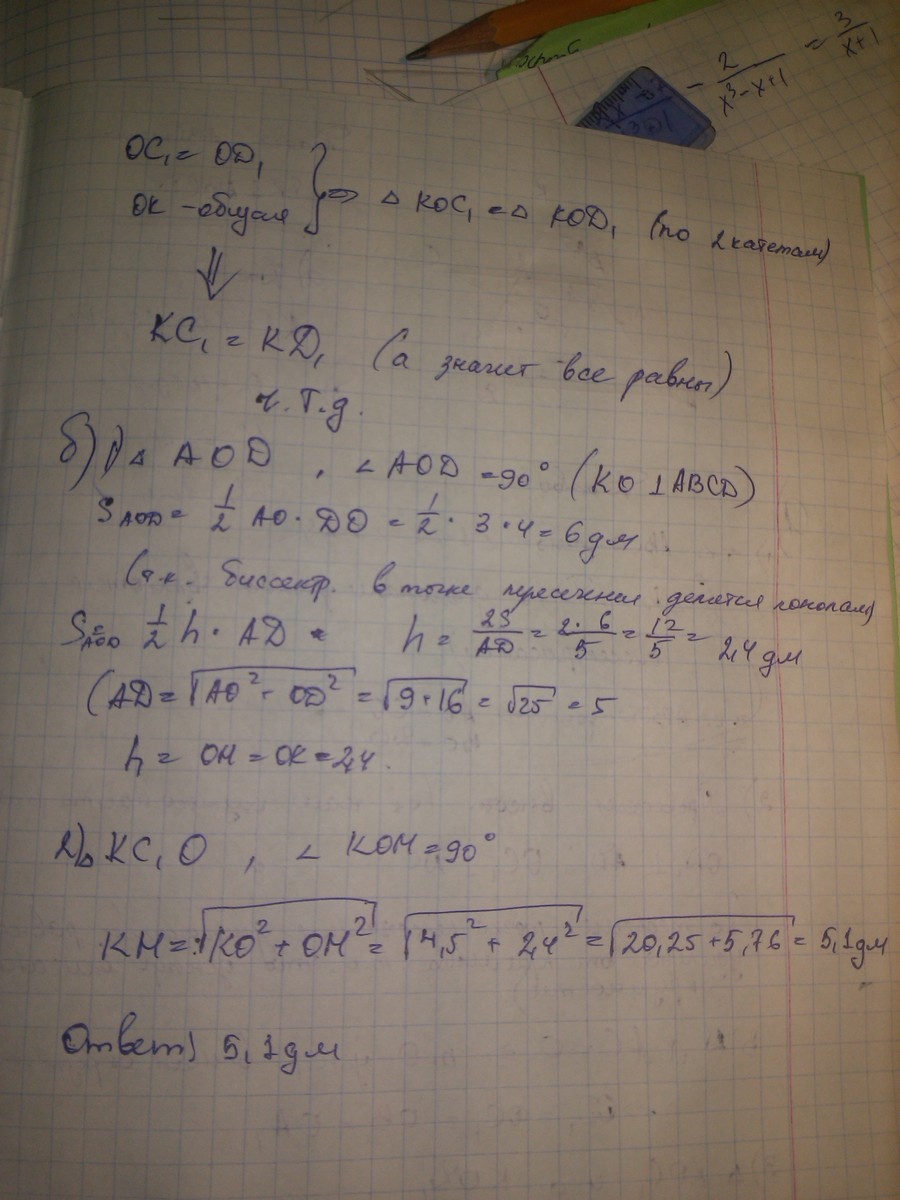 - 2/(x³-x+1) = 3/(x+1)
OC₁ = OD₁
OK - общая } ⇒ △ KOC₁ = △ KOD₁ (по 2 катетам)
⇓
KC₁ = KD₁ (а значит все равны)
ч.т.д.
б) 1) △ AOD , ∠ AOD = 90° (KO ⊥ ABCD)
S AOD = 1/2 AO · DO = 1/2 · 3 · 4 = 6 дм
(т.к. биссектр. в точке пересечения делятся попалам)
S AOD = 1/2 h · AD = h = 2S/AD = 2·6/5 = 12/5 = 2,4 дм
(AD = √AO² + OD² = √9+16 = √25 = 5
h = OH = OK = 2,4.
2) △ KC₁O , ∠ KOH = 90°
KH = √KO² + OH² = √4,5² + 2,4² = √20,25 + 5,76 = 5,1 дм
Ответ) 5,1 дм